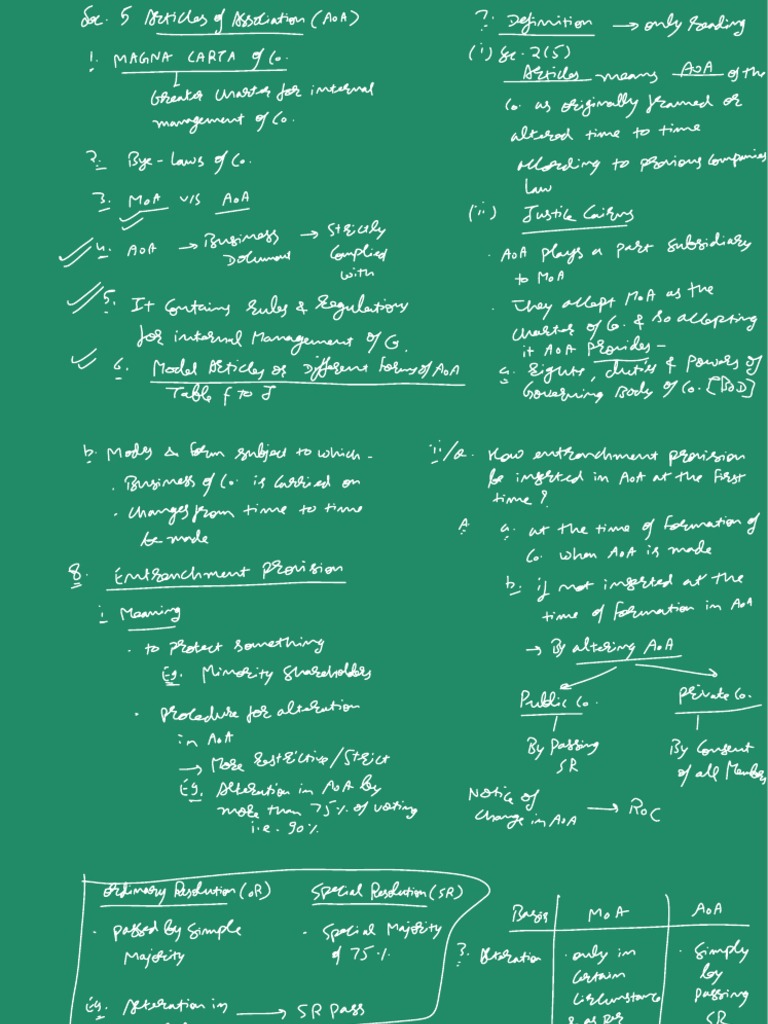 Sec. 5 Articles of Association (AoA)
1. MAGNA CARTA of Co.
Greater Charter for internal
management of Co.
2. Bye-Laws of Co.
3. MoA v/s AoA
4. AoA → Business Document → Strictly Complied with
5. It Contains Rules & Regulations
for internal Management of Co.
6. Model Articles or Different Forms of AoA
Table F to J
7. Definition → only Reading
(i) Sec. 2(5)
Articles means AoA of the
Co. as originally framed or
altered time to time
according to previous Companies
Law
(ii) Justice Cairns
. AoA plays a part subsidiary
to MoA
. They accept MoA as the
Charter of Co. & so accepting
it AoA provides -
a. Rights, duties & Powers of
Governing Body of Co. [BoD]
b. Modes & form subject to which -
. Business of Co. is carried on
. Changes from time to time
be made
8. Entrenchment Provision
i. Meaning
. to protect something
Eg. Minority Shareholders
. Procedure for alteration
in AoA
→ More Restrictive/Strict
Eg. Alteration in AoA by
more than 75% of voting
i.e. 90%
ii/a. How entrenchment provision
be inserted in AoA at the First
time?
A. a. at the time of Formation of
Co. when AoA is made
b. if not inserted at the
time of Formation in AoA
→ By altering AoA
Public Co. Private Co.
By Passing By Consent
SR of all Members
Notice of
Change in AoA → RoC
Ordinary Resolution (OR) Special Resolution (SR)
. Passed by Simple . Special Majority
Majority of 75%
Eg. Alteration in → SR Pass
Basis MoA AoA
3. Alteration . only in . Simply
Certain by
Circumstance Passing
& as per SR